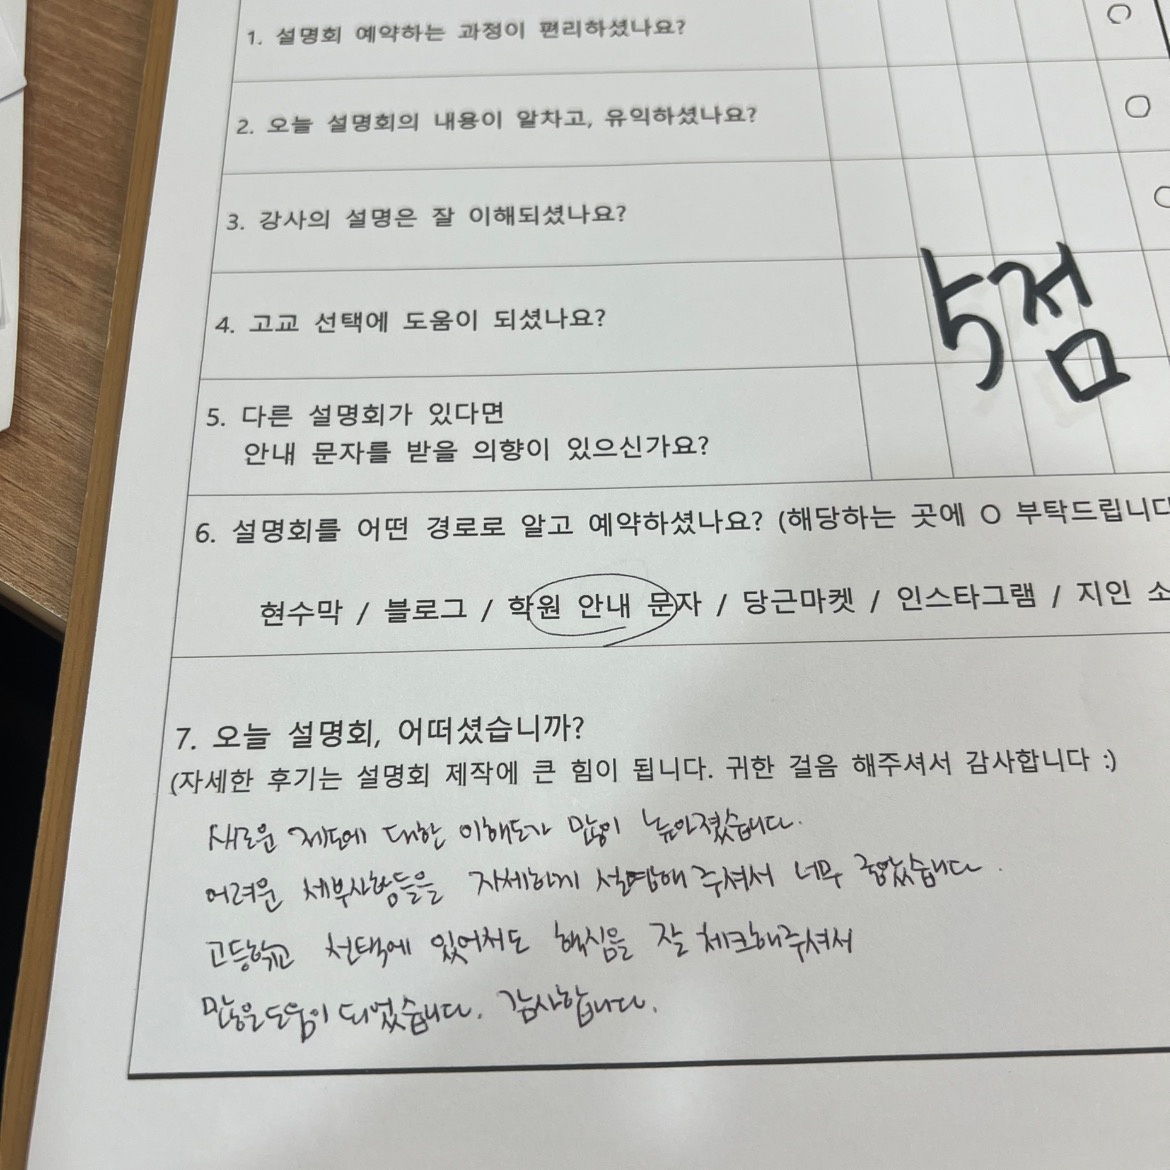 1. 설명회 예약하는 과정이 편리하셨나요?
2. 오늘 설명회의 내용이 알차고, 유익하셨나요?
3. 강사의 설명은 잘 이해되셨나요?
5점
4. 고교 선택에 도움이 되셨나요?
5. 다른 설명회가 있다면
안내 문자를 받을 의향이 있으신가요?
6. 설명회를 어떤 경로로 알고 예약하셨나요? (해당하는 곳에 O 부탁드립니다
현수막 / 블로그 / 학원 안내 문자 / 당근마켓 / 인스타그램 / 지인 소
7. 오늘 설명회, 어떠셨습니까?
(자세한 후기는 설명회 제작에 큰 힘이 됩니다. 귀한 걸음 해주셔서 감사합니다 :)
새로운 제도에 대한 이해도가 많이 높아졌습니다.
어려운 세부사항들을 자세하게 설명해 주셔서 너무 좋았습니다.
고등학교 선택에 있어서도 핵심을 잘 체크해주셔서
많은 도움이 되었습니다. 감사합니다.